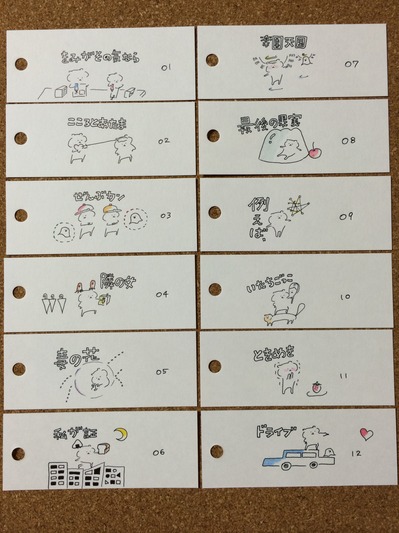 きみがその気なら
01
こころとあたま
02
ぜんぶカン
03
隣の女
04
毒の花
05
私が証
06
楽園天国
07
最後の果実
08
例えば、
09
いたちごっこ
10
ときめき
11
ドライブ
12